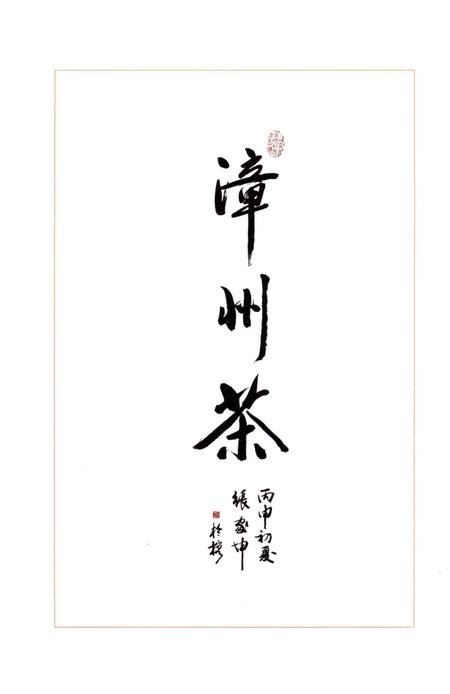 漳州茶
丙申初夏
張家坤
於榕